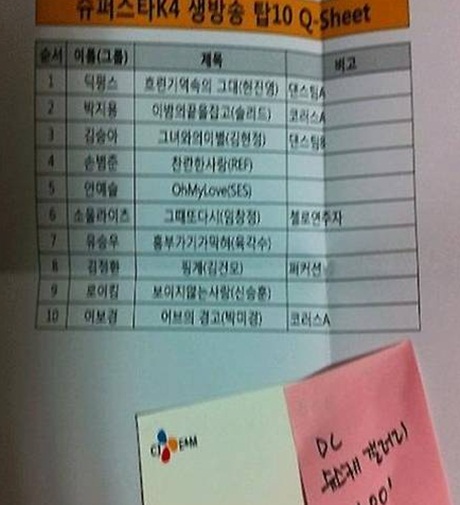 슈퍼스타K4 생방송 탑10 Q-Sheet
순서 이름(그룹) 제목 비고
1 딕펑스 흐린기억속의 그대(현진영) 댄스팀A
2 박지용 이밤의끝을잡고(솔리드) 코러스A
3 김승아 그녀와의이별(김현정) 댄스팀
4 손범준 찬란한사랑(REF)
5 안예슬 OhMyLove(SES)
6 소울라이츠 그때또다시(임창정) 첼로연주자
7 유승우 흥부가기가막혀(육각수)
8 김정환 핑계(김건모) 퍼커션
9 로이킴 보이지않는사랑(신승훈)
10 이보경 이브의 경고(박미경) 코러스A
CJ E&M
DC
슈스케 갤러리